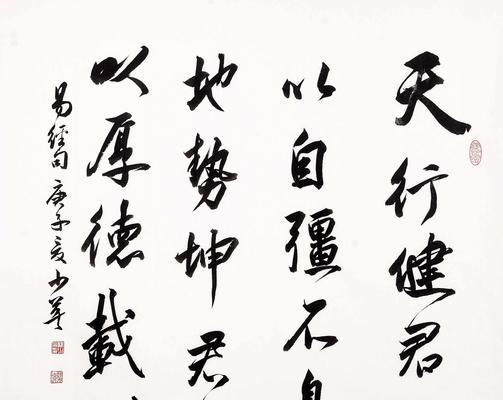 天行健君
以自彊不
地勢坤君
以厚德載
易經句 庚子夏 少